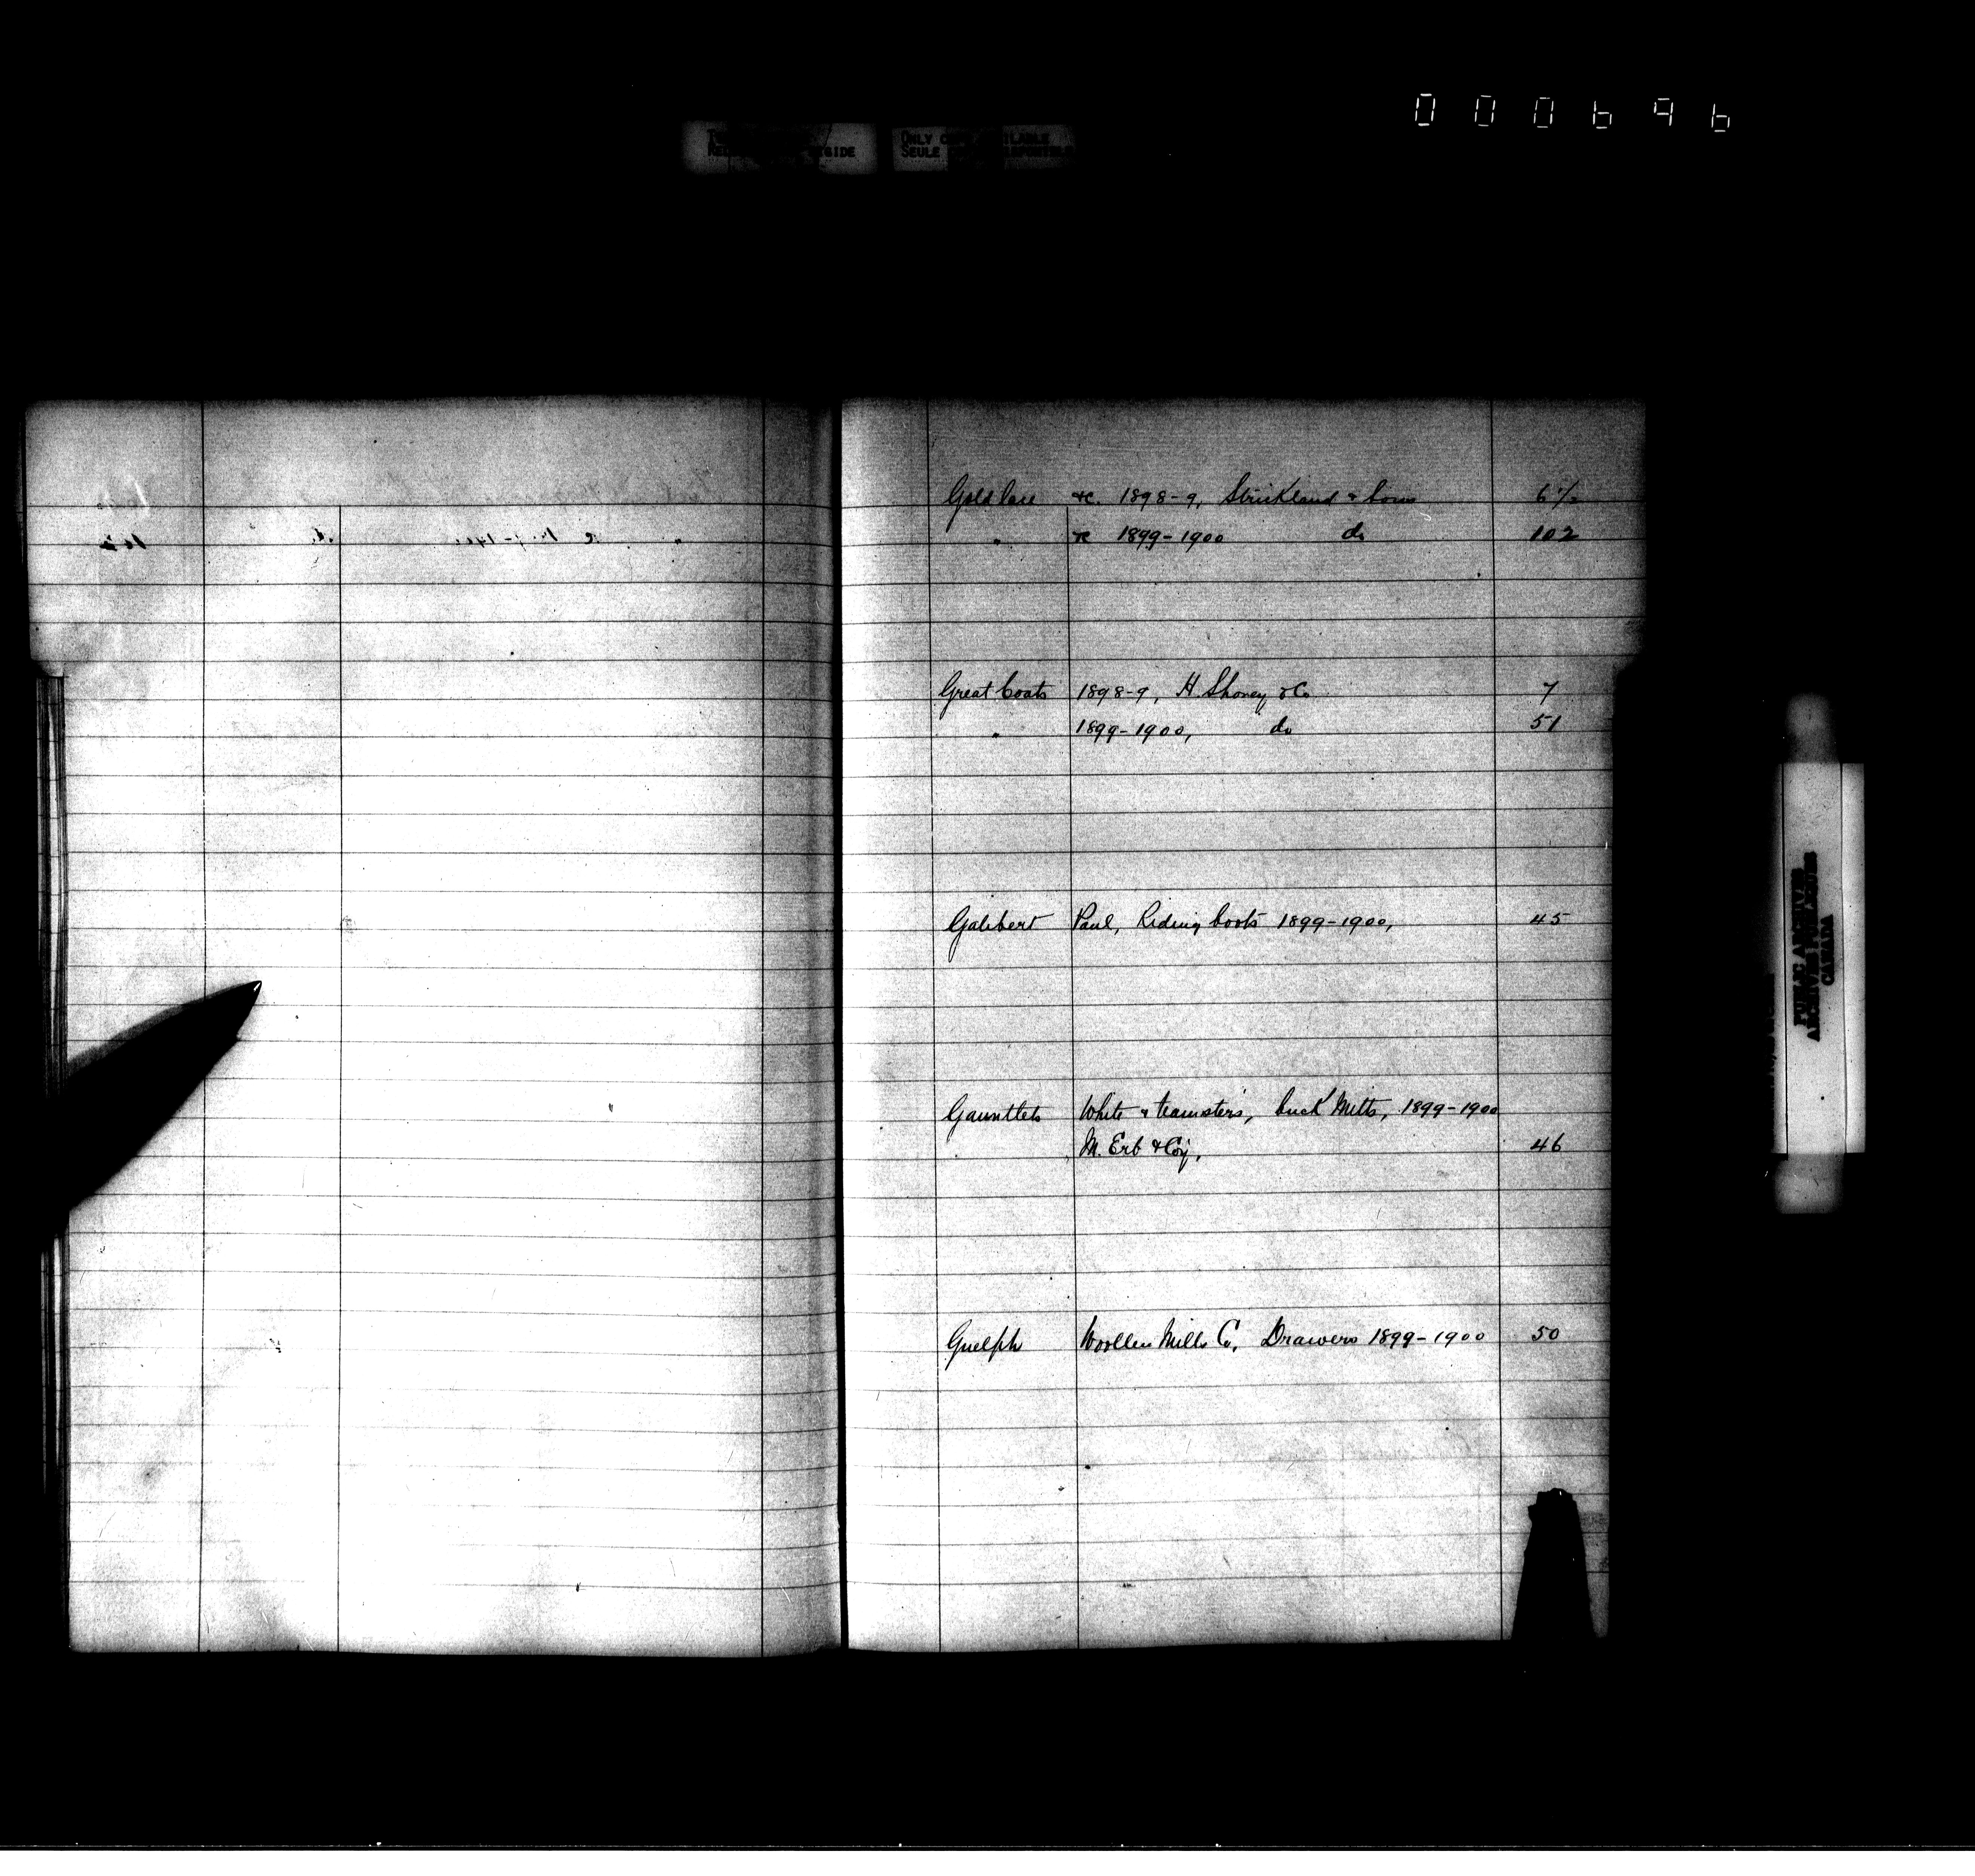 000696
ONLY
SEULE
Gold lace &c. 1898-9, Strickland & Sons 6½
" &c 1899-1900 do 102
Great Coats 1898-9, H. Shorey & Co 7
" 1899-1900, do 51
Galibert Paul, Riding boots 1899-1900, 45
Gauntlets White & teamsters', buck Mitts, 1899-1900
M. Erb & Coy, 46
Guelph Woollen Mills Co, Drawers 1899-1900 50
PUBLIC ARCHIVES
ARCHIVES PUBLIQUES
CANADA